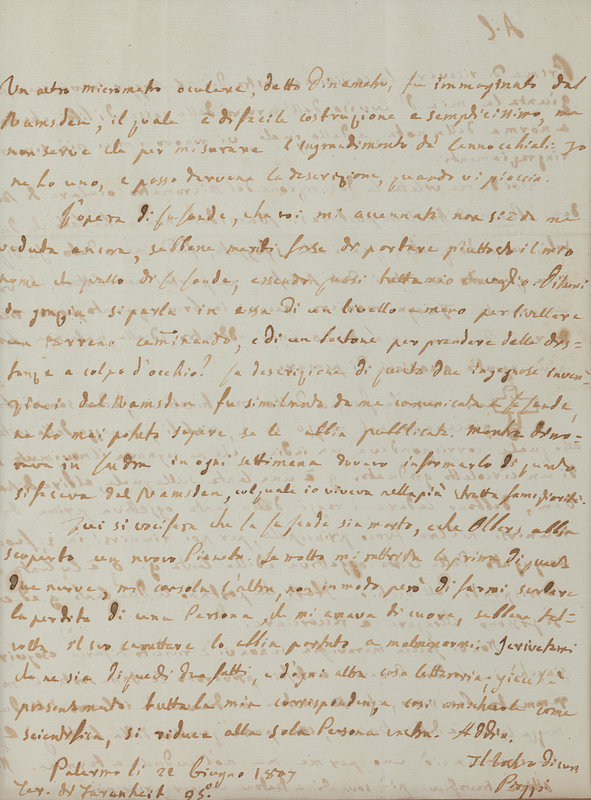 Un altro micrometro oculare, detto Dinametro, fu immaginato dal
Ramsden, il quale è di facile costruzione e semplicissimo, ma
non serve che per misurare l'ingrandimento de' Cannocchiali. Io
ne ho uno, e posso darvene la descrizione, quando vi piaccia.
L'opera di La Lande, che voi mi accennate non si è da me
veduta ancora, sebbene meriti forse di portare piuttosto il mio
nome che quello di La Lande, essendo quasi tutta mio travaglio. Ditemi
di grazia si parla in essa di un livello a mano per livellare
un terreno camminando, e di un bastone per prendere delle dis-
tanze a colpo d'occhio? La descrizione di queste due ingegnose inven-
zioni del Ramsden fu similmente da me comunicata a La Lande,
ne ho mai potuto sapere se le abbia pubblicate. Mentre dimo-
rava in Londra in ogni settimana doveva informarlo di quanto
si faceva dal Ramsden, col quale io viveva nella più stretta famigliarità.
Qui si vocifera che la La Lande sia morto, e che Olbers abbia
scoperto un nuovo Pianeta. Se molto mi rattrista la prima di queste
due nuove, mi consola l'altra, non in modo però di farmi scordare
la perdita di una Persona, che mi amava di cuore, sebbene tal-
volta il suo carattere lo abbia portato a Scrivetemi
che ne sia di questi due fatti, e d'ogni altra cosa letteraria; giacchè
presentemente tutta la mia corrispondenza, così amichevole come
scientifica, si riduce alla sola Persona vostra. Addio.
Palermo li 22 Giugno 1807
Il vostro di cuore
Ter. di Faranheit 95.°
Piazzi